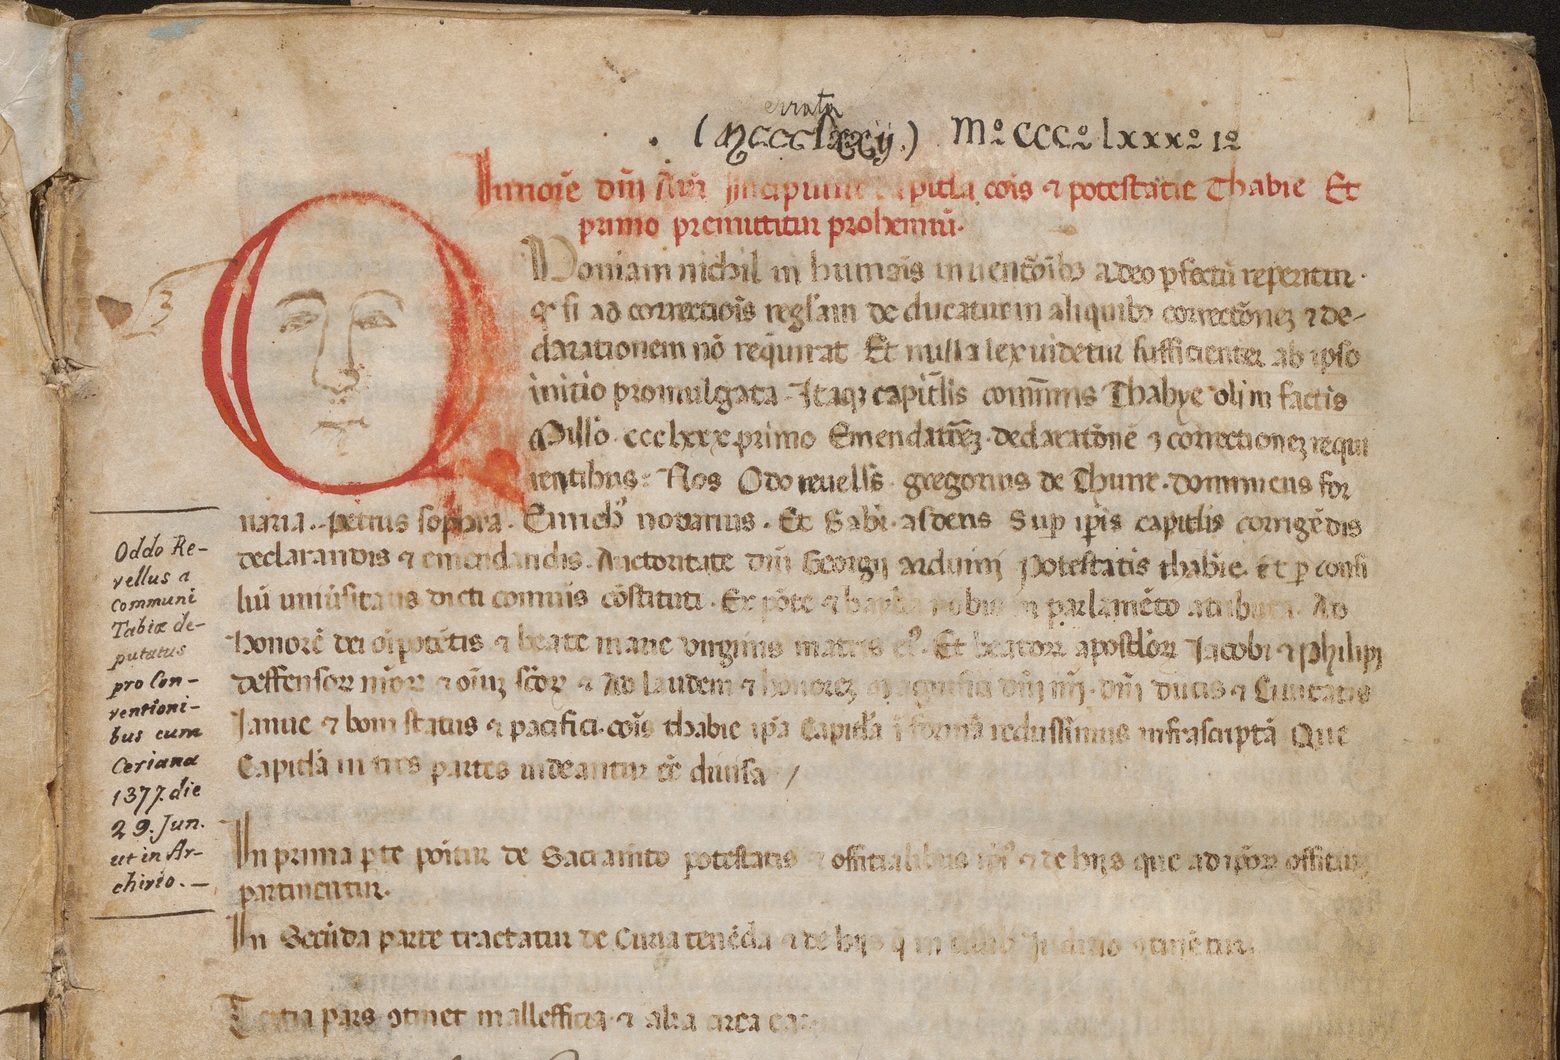 errata
(MCCCLXXIJ.) Mº CCCº lxxxº 1º
In noĩe dñi Incipiunt capitla cõis ⁊ potestatie Thabie Et
primo premittitur prohemiũ.
Quoniam nichil in humãis inuentõibs adeo pfectũ reperitur.
si ad correctiõis reglam deducatur in aliquibs correctõnez ⁊ de-
clarationem nõ requirat Et nulla lex uidetur sufficienter ab ipso
initio promulgata. Itaqz capitlis comũnis Thabye olim factis
Millo. ccclxxxprimo Emendatõez. declaratõnẽ ⁊ correctionez requi
rentibus: Nos Odo reuellus gregorius de Thune. dominicus for
naria. petrus sophora. notarius. Et Sup ipis capitlis corrigẽdis
declarandis ⁊ emendandis. Auctoritate dñi Georgij arduini Potestatis thabie. et p consi
liũ uniũsitatis dicti comũis cõstituti. Ex põte ⁊ baylia nobis in parlamẽto atributa. Ad
honorẽ dei oĩpotẽtis ⁊ beate marie uirginis matris Et beator apostlor Jacobi ⁊ Philipi
deffensor nror ⁊ oĩuz sctor ⁊ Ad laudem ⁊ honorez magnifici dñi nri. dñi ducis ⁊ Ciuitatis
Janue ⁊ boni status ⁊ pacifici. cõis thabie ipa Capitla ĩ formã reduximus infrascriptã Que
Capitla in tres partes uideantur eẽ diuisa /
In prima pte põitur de Sacramto potestatis ⁊ offitialibus ⁊ de hijs que ad ipor offitiũ
partinentur.
In Secũda parte tractatur de Curia tenẽda ⁊ de hijs q̃ in ciuili Juditio ↄtinẽtur
Tertia pars ↄtinet mallefficia ⁊ alia circa ea
Oddo Re-
vellus a
Communi
Tabiæ de-
putatus
pro Con-
ventioni-
bus cum
Ceriana
1377. die
29. Jun.
ut in Ar-
chivio. —